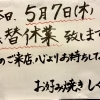 本日、5月7日(木)
振替休業 致します
のご来店心よりお待ちして
お好み焼き しく